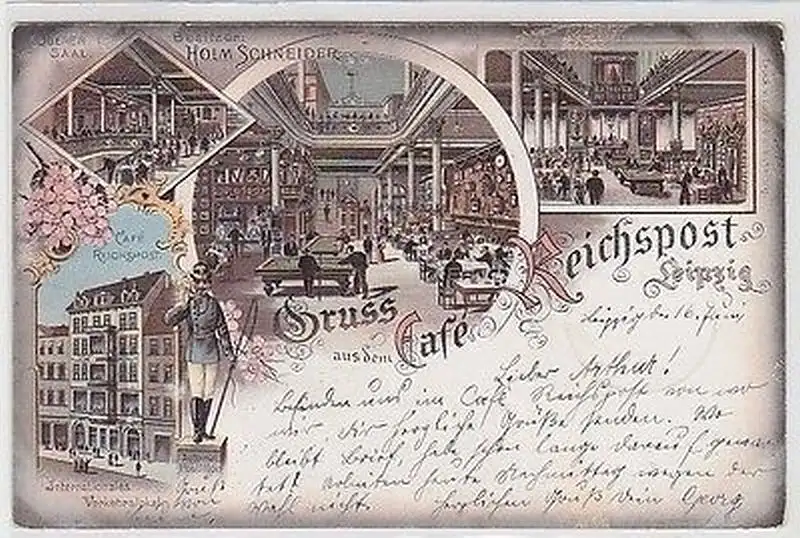 SAAL
Besitzer:
HOLM SCHNEIDER
CAFÉ
REICHSPOST
Gruss
aus dem
Café
Reichspost
Leipzig
Leipzig d. 16. Juni,
Lieber Arthur!
Befinden uns im Café Reichspost von wo
wir Dir herzliche Grüße senden. Wo
bleibt Brief, habe schon lange darauf gewar
tet! heute Nachmittag wegen der
Wahl nicht. Herzlichen Gruß Dein Georg
Internationales
Verkehrslokal
Gruß
von